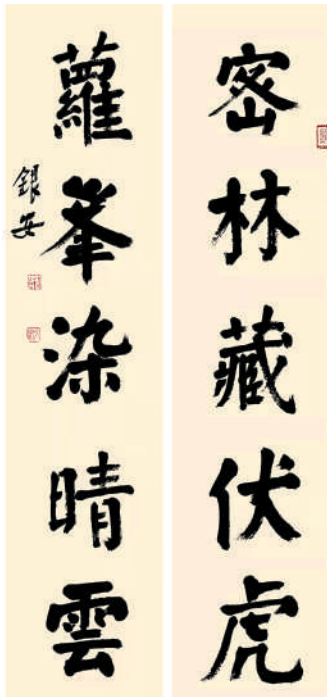 密林藏伏虎
蘿峯染晴雲
銀安